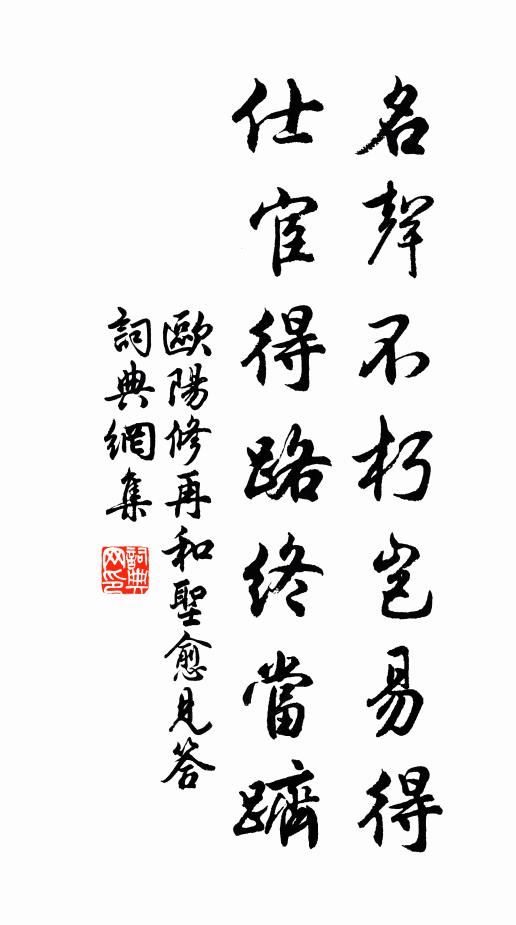 名聲不朽豈易得
仕宦得路終當躋
歐陽修再和聖愈見答
詞典網集
詞典网印